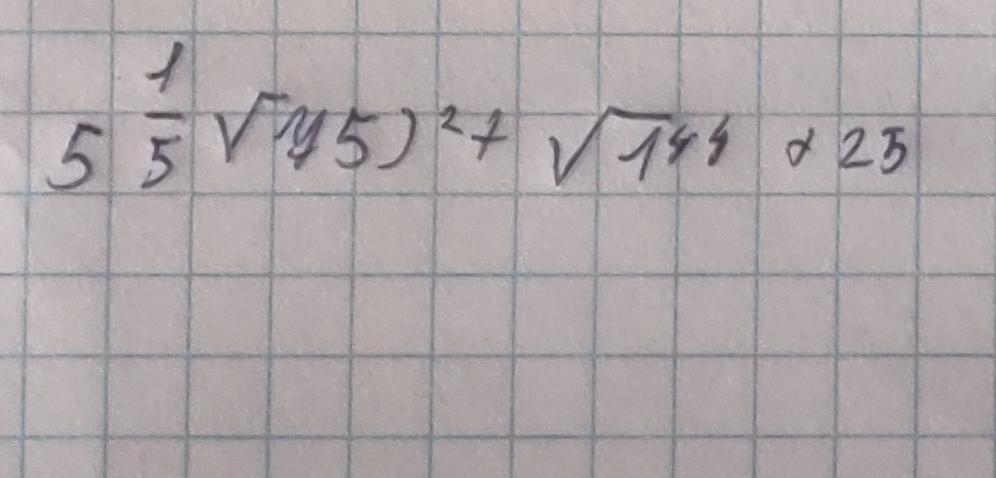 5 1/5 √45)² + √144 × 25